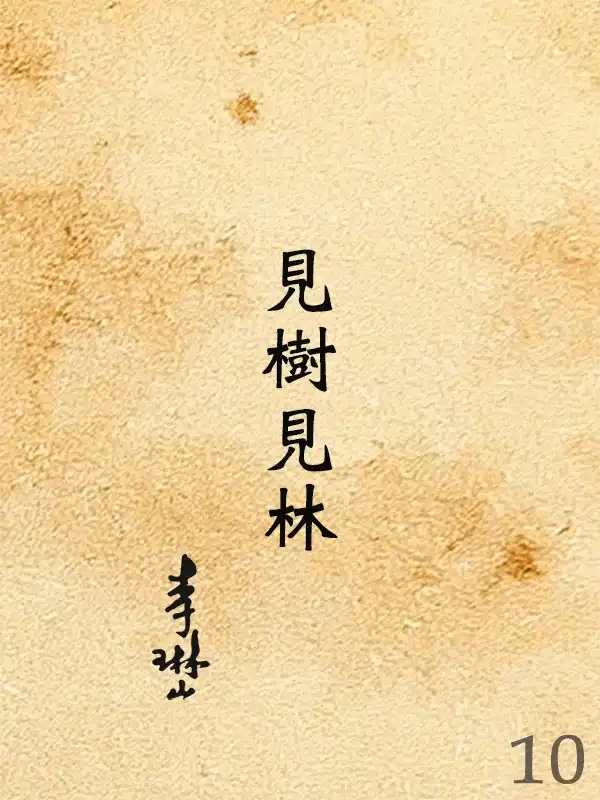 見樹見林
李琳山
10